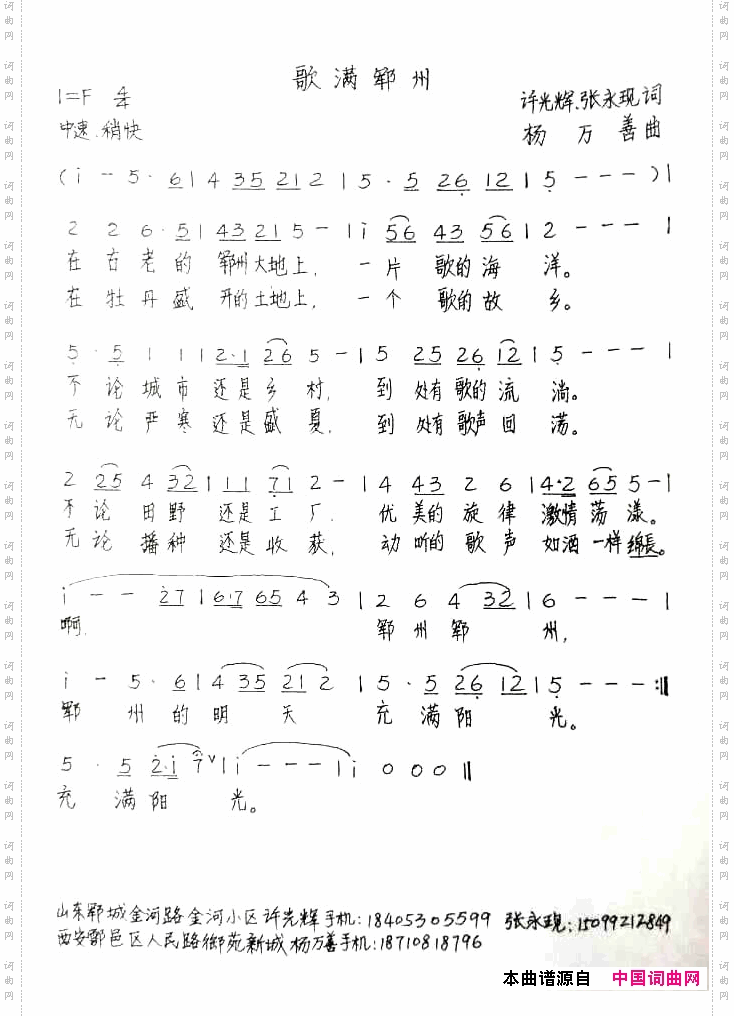 歌满郓州
1=F 4/4
许光辉、张永现 词
中速 稍快
杨万善曲
(i - 5 · 6 | 4 35 21 2 | 5 · 5 26 12 | 5 - - - ) |
2 2 6 · 5 | 43 21 5 - | i 56 43 56 | 2 - - - |
在古老的郓州大地上, 一片歌的海洋。
在牡丹盛开的土地上, 一个歌的故乡。
5 · 5 1 1 | 2·1 26 5 - | 5 25 26 12 | 5 - - - |
不论城市还是乡村, 到处有歌的流淌。
无论严寒还是盛夏, 到处有歌声回荡。
2 25 4 32 | 11 71 2 - | 4 43 2 6 | 4·2 65 5 - |
不论田野还是工厂, 优美的旋律激情荡漾。
无论播种还是收获, 动听的歌声如酒一样绵長。
i - - 27 | 6·7 65 4 3 | 2 6 4 32 | 6 - - - |
啊, 郓州郓州,
i - 5 · 6 | 4 35 21 2 | 5 · 5 26 12 | 5 - - - :‖
郓州的明天充满阳光。
5 · 5 2·i 7 ∨ | i - - - | i 0 0 0 ‖
充满阳光。
山东郓城金河路金河小区许光辉手机:18405305599 张永现:15099212849
西安鄠邑区人民路御苑新城杨万善手机:18710818796
本曲谱源自 中国词曲网
词曲网